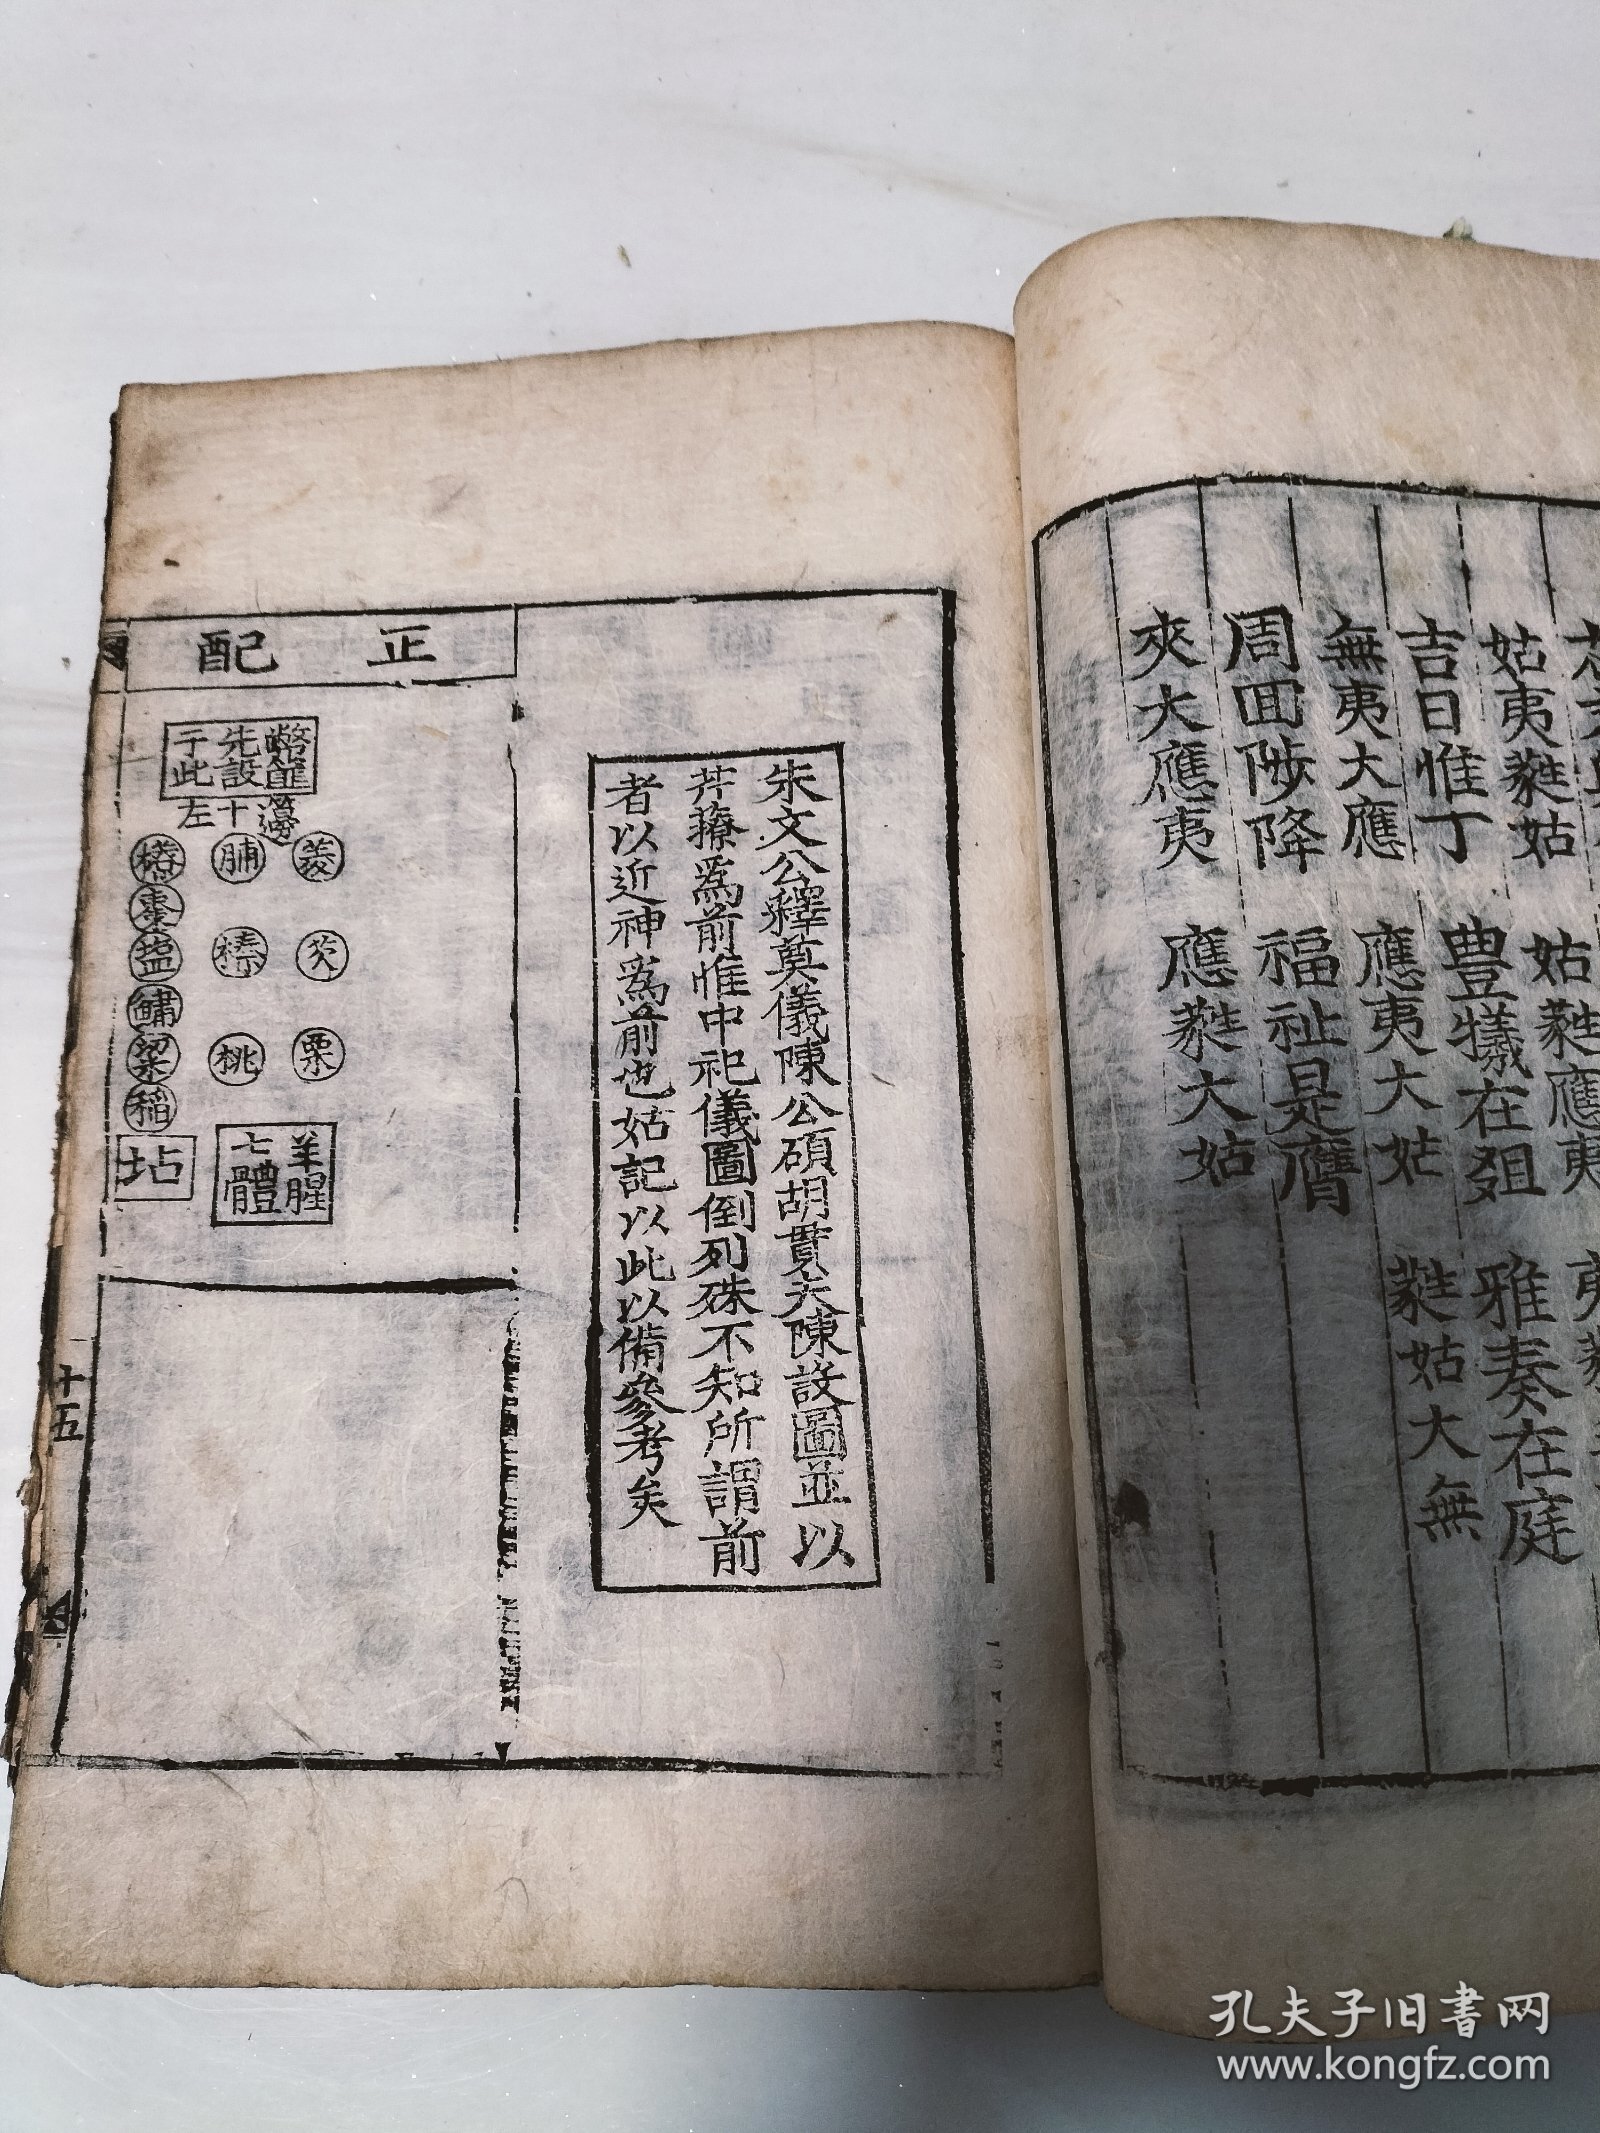 姑夷蕤姑 姑蕤應夷
吉日惟丁 豊犧在俎 雅奏在庭
無夷大應 應夷大姑 蕤姑大無
周囬陟降 福祉是膺
夾大應夷 應蕤大姑
朱文公釋奠儀陳公碩胡貫夫陳設圖並以
芹𦵏爲前惟中祀儀圖倒列殊不知所謂前
者以近神爲前也姑記以此以備參考矣
正 配
幣篚
先設
于此
左十籩
菱 芡 栗
脯 榛 桃
棗 塩 鱐 梁 稲
羊腥
七體
坫
十五
孔夫子旧書网
www.kongfz.com